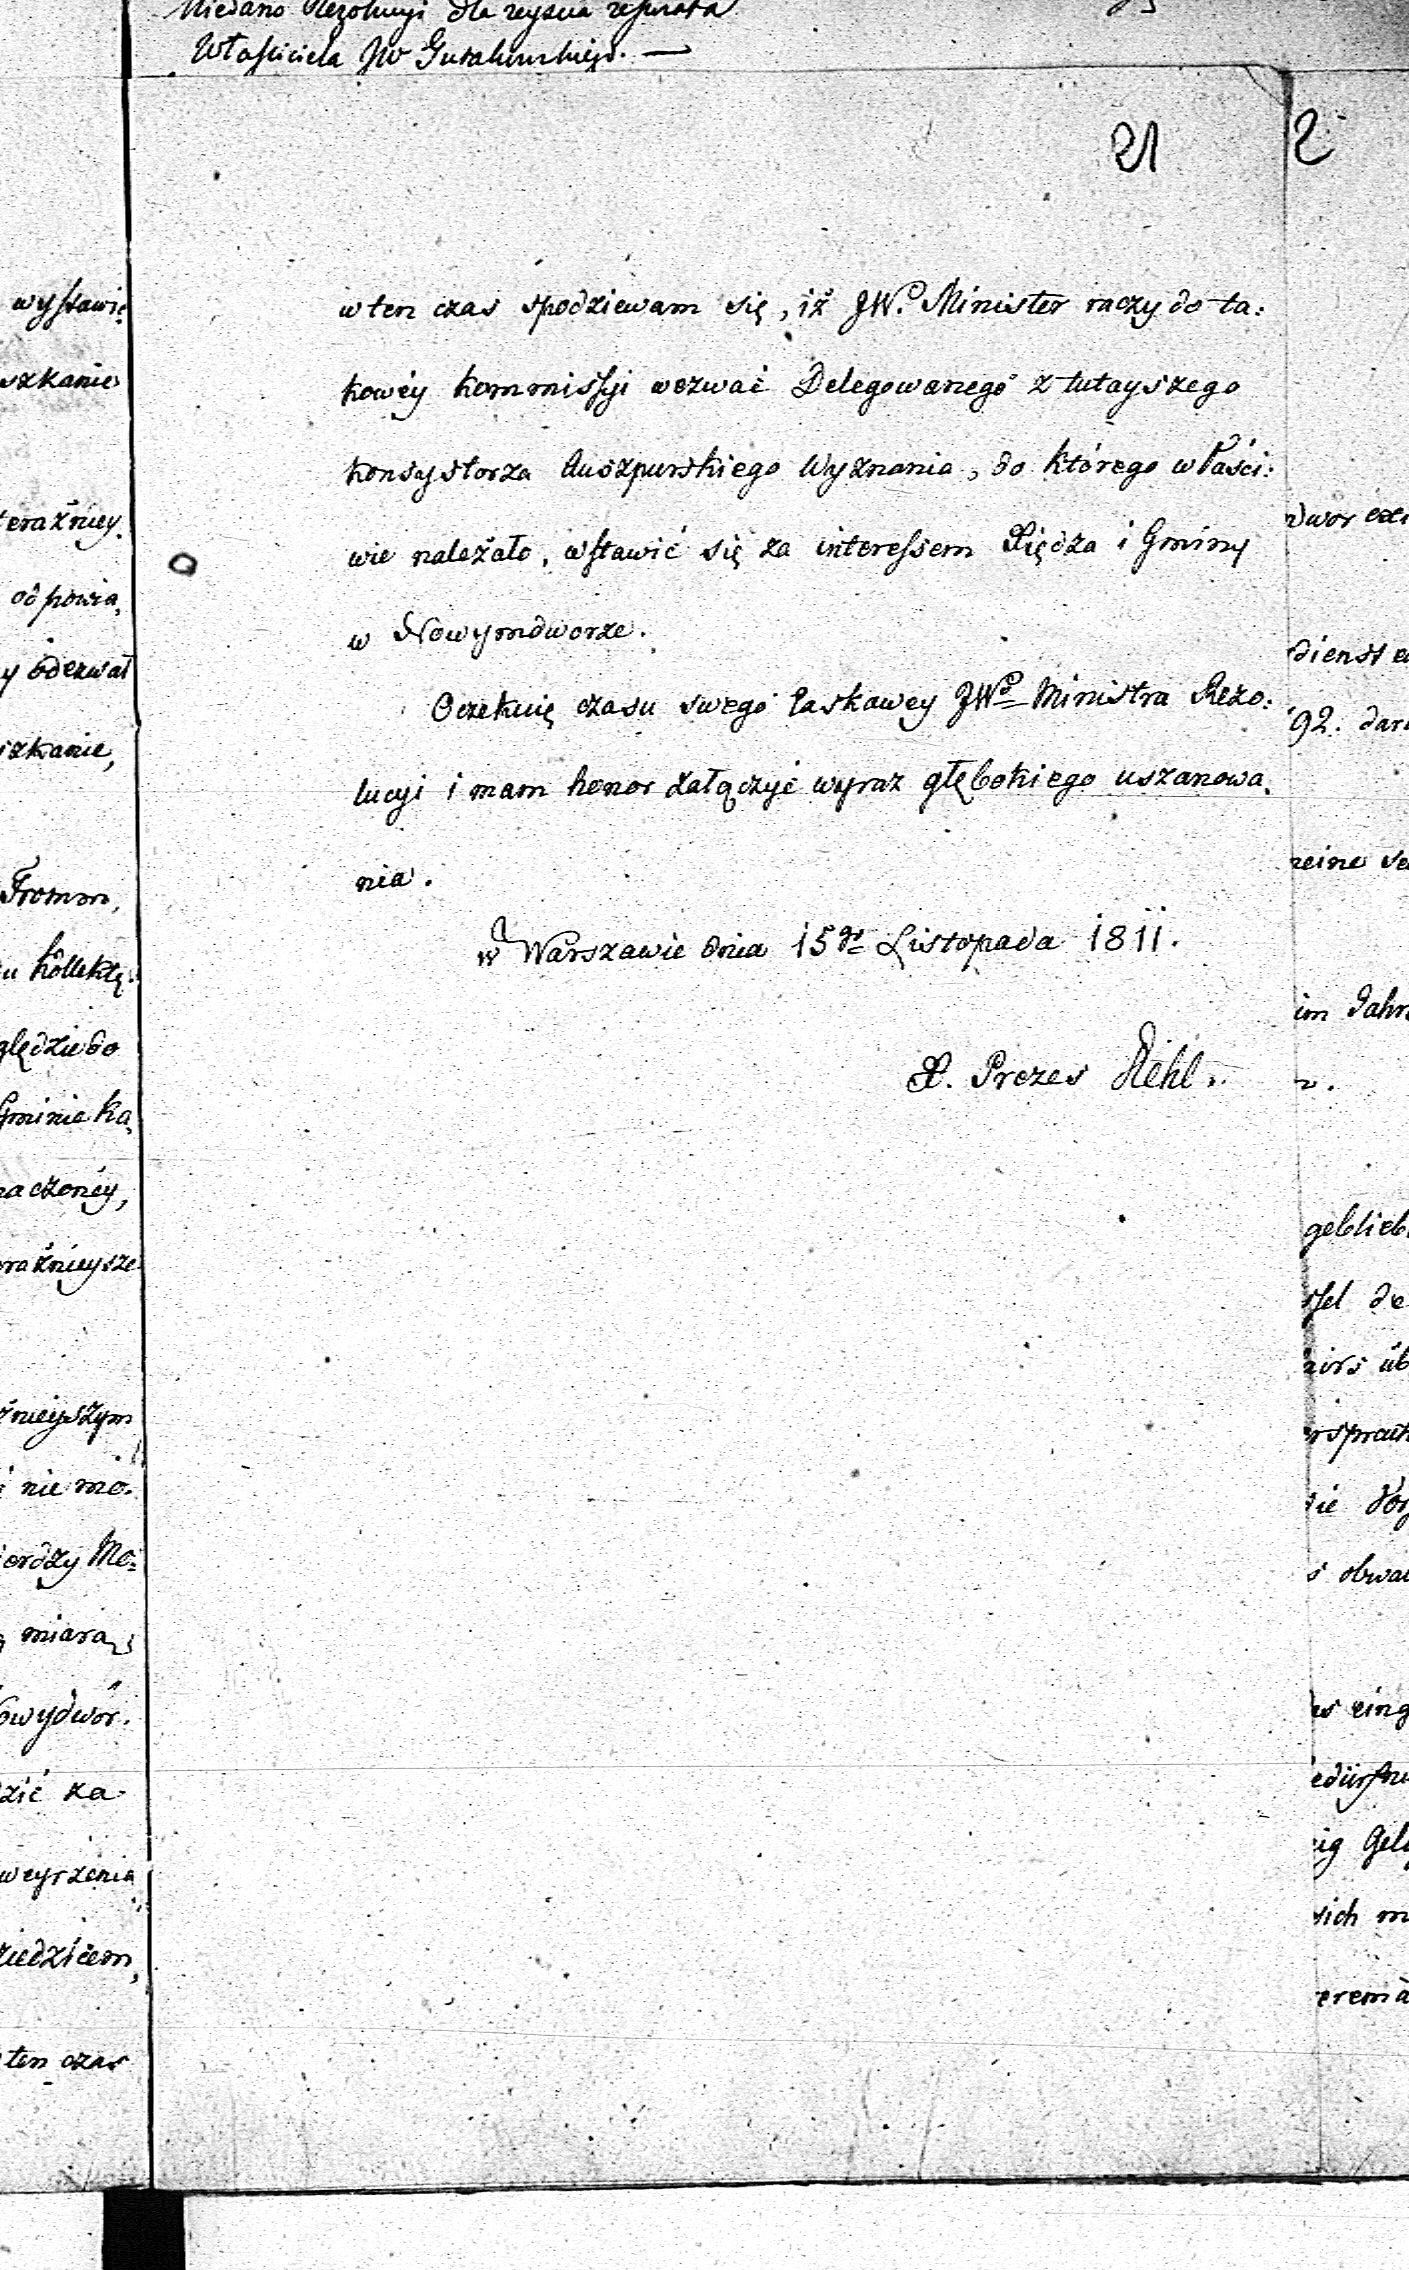 Niedano Rezolucyi dla zeyscia
Własciciela JW
21
2
w ten czas spodziewam się, iż JWP. Minister raczy do ta:
kowéy kommissyi wezwać Delegowanego z tutayszego
konsystorza Auszpurskiego Wyznania, do którego właści:
wie należało, wstawić się za interessem Xiędza i Gminy
w Nowymdworze.
Oczekuię czasu swego łaskawey JWP Ministra Rezo:
lucyi i mam honor załączyć wyraz głębokiego uszanowa.
nia.
w Warszawie dnia 15go Listopada 1811.
X. Prezes Diehl.
wystawie
szkanie
teraźniey.
odpowia,
y odezwał
szkanie,
Fromm,
u kollektę.
ględzie do
Gminie ka,
naczonéy,
raźnieysze
źnieyszym
i nie mo.
ierdzy Mo:
miarą,
owydwór.
dzić za-
weyrzenia
ziedzicem,
ten czas
dienst
92.
im Jahr
v.
geblieb
s eing
ig
sich m